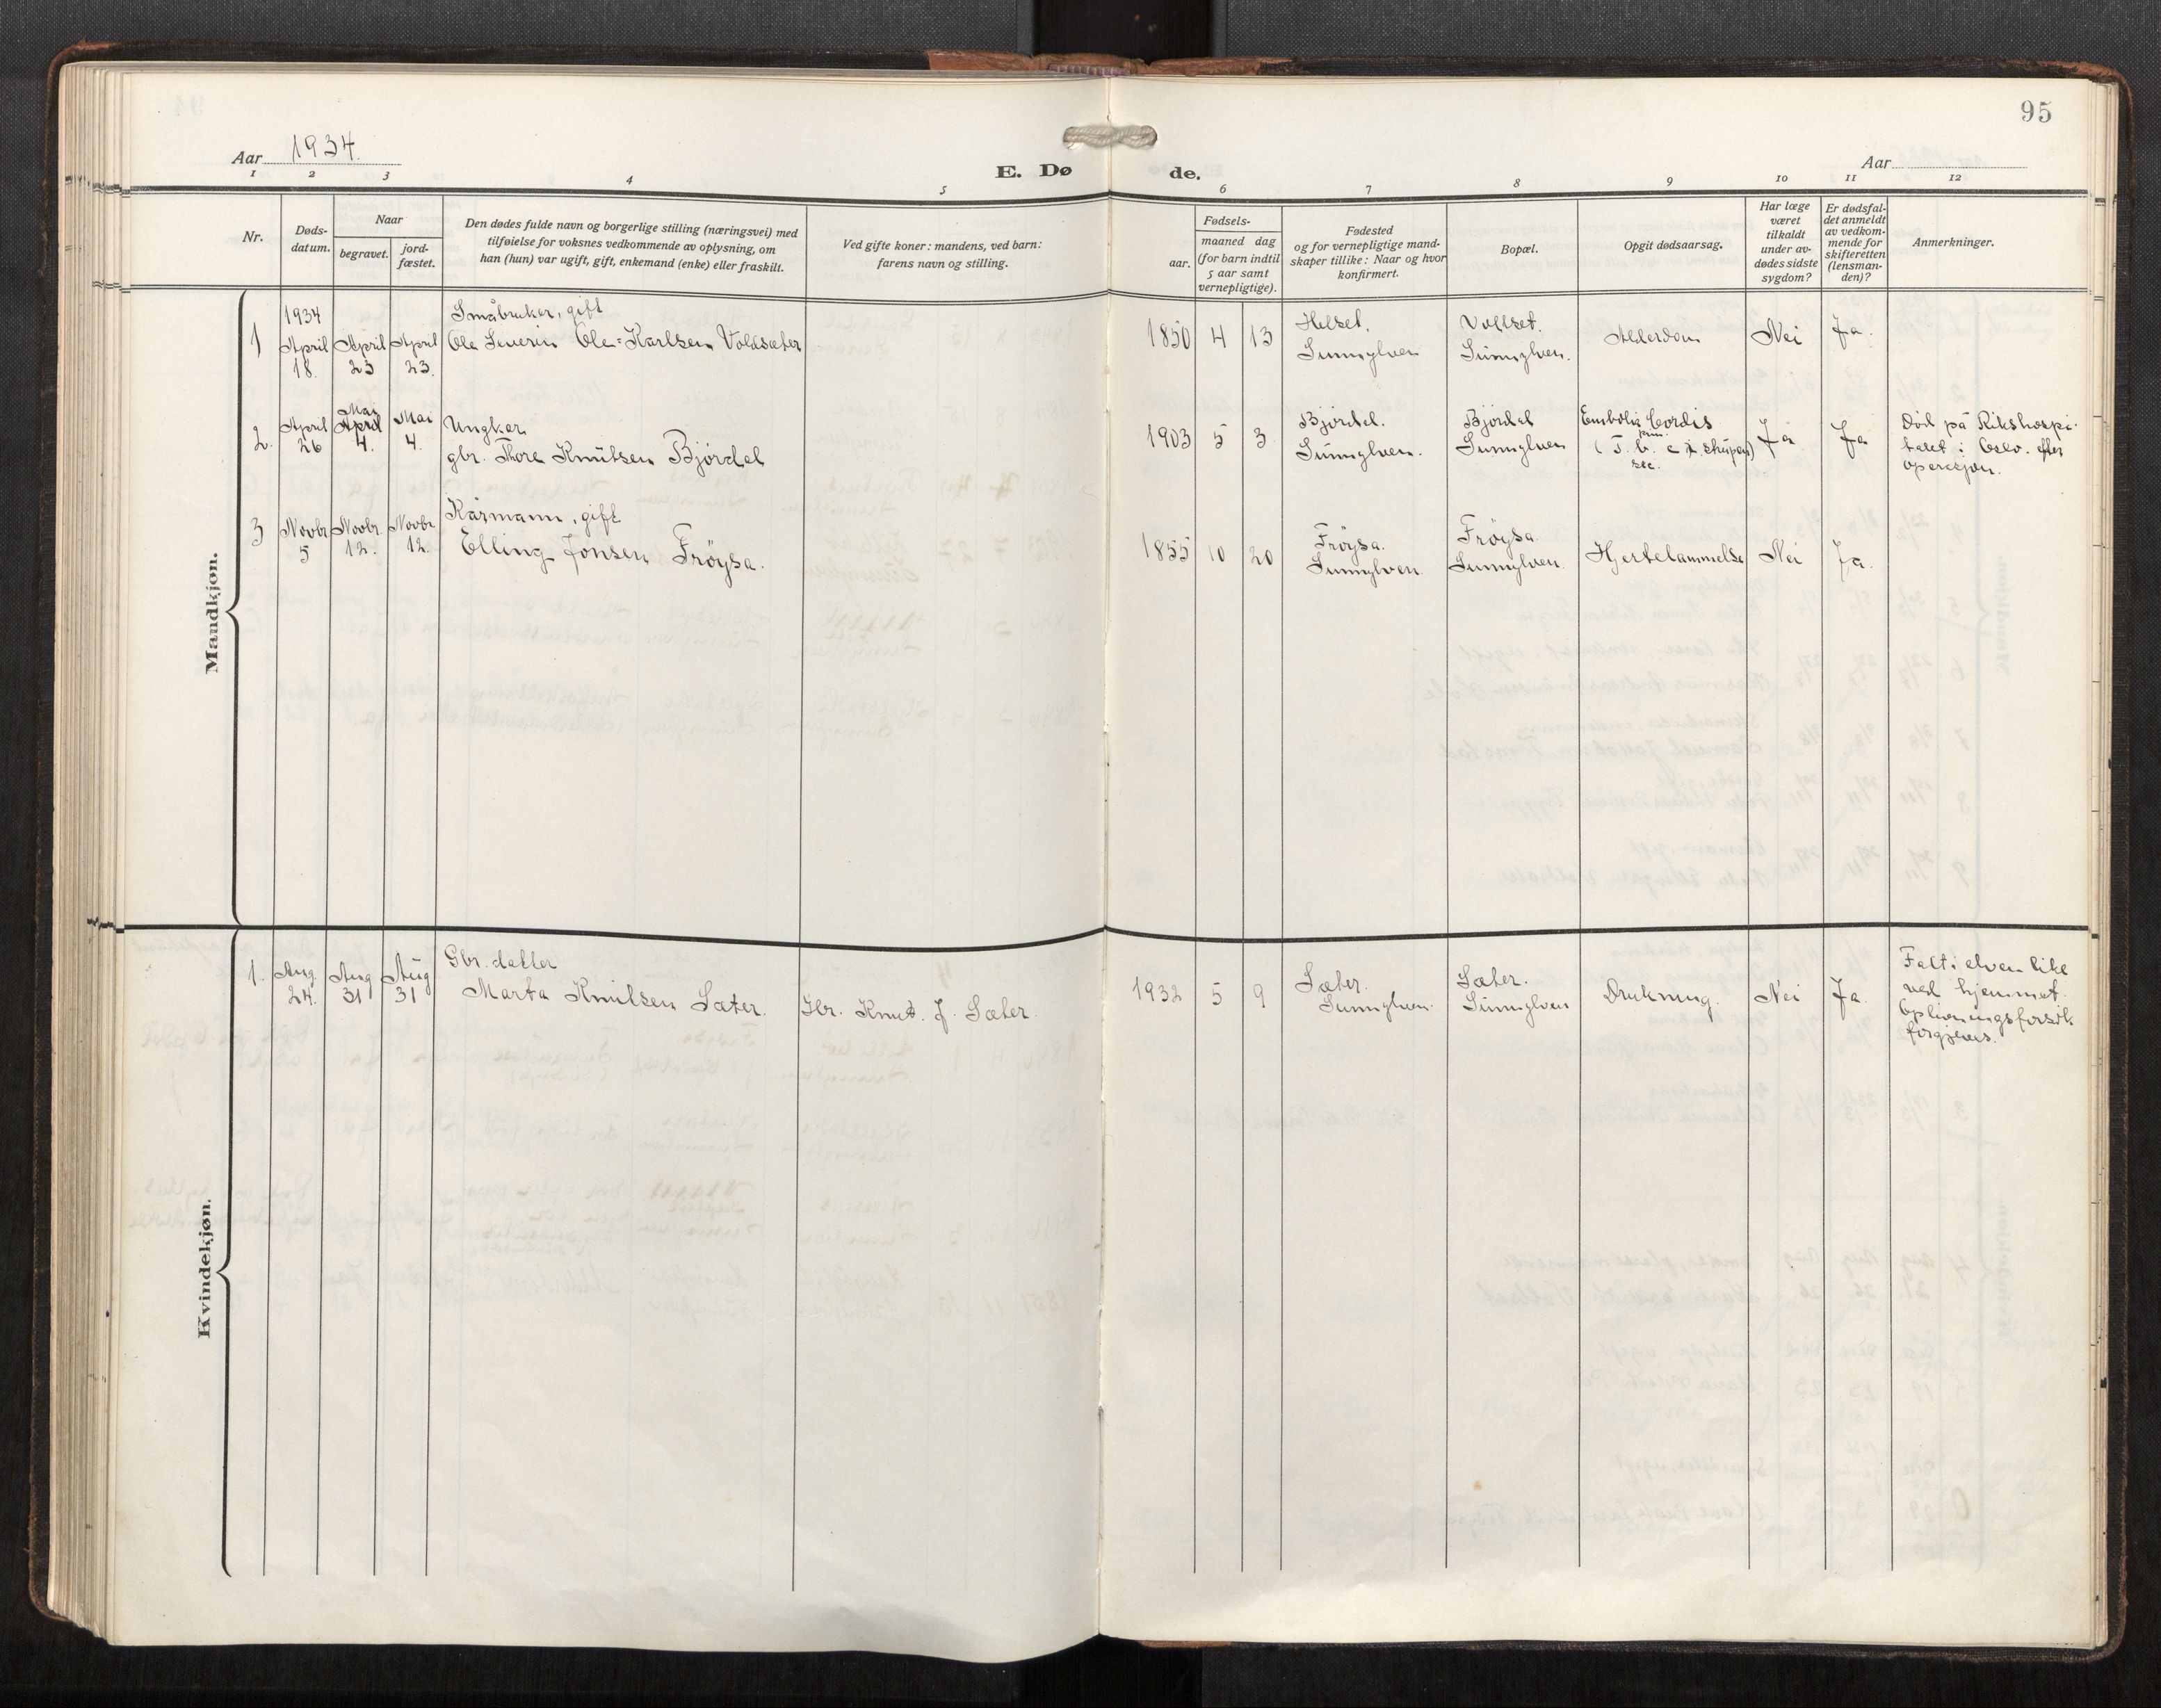 95
Aar 1934.
E. Dø de.
Aar
1 2 3 4 5 6 7 8 9 10 11 12
Nr.
Døds-
datum.
Naar
begravet.
jord-
fæstet.
Den dødes fulde navn og borgerlige stilling (næringsvei) med
tilføielse for voksnes vedkommende av oplysning, om
han (hun) var ugift, gift, enkemand (enke) eller fraskilt.
Ved gifte koner: mandens, ved barn:
farens navn og stilling.
Fødsels-
aar.
maaned dag
(for barn indtil
5 aar samt
vernepligtige).
Fødested
og for vernepligtige mand-
skaper tillike: Naar og hvor
konfirmert.
Bopæl.
Opgit dødsaarsag.
Har læge
været
tilkaldt
under av-
dødes sidste
sygdom?
Er dødsfal-
det anmeldt
av vedkom-
mende for
skifteretten
(lensman-
den)?
Anmerkninger.
Mandkjøn.
1
1934
April
18.
April
23
April
23.
Småbruker, gift
Ole Severin Ole-Karlsen Voldsæter
1850 4 13
Helset.
Sunnylven
Vollset.
Sunnylven.
Alderdom
Nei
Ja.
2.
April
26
Mai
April
4.
Mai
4.
Ungkar
gbr. Thore Knutsen Bjørdal
1903 5 3
Bjørdal.
Sunnylven.
Bjørdal
Sunnylven
Emboli Cordis
(T. b. c i strupen)
sec.
Ja
Ja
Død på Rikshospi-
talet i Oslo. efter
operasjon.
3
Novbr
5
Novbr.
12.
Novbr.
12.
Kårmann, gift
Elling Jonsen Frøysa.
1855 10 20
Frøysa.
Sunnylven.
Frøysa.
Sunnylven.
Hjertelammelse
Nei
Ja.
Kvindekjøn.
1.
Aug.
24.
Aug
31
Aug
31
Gbr. datter
Marta Knutsen Sæter.
Gbr. Knut J. Sæter.
1932 5 9
Sæter.
Sunnylven.
Sæter.
Sunnylven
Drukning.
Nei
Ja.
Falt i elven like
ved hjemmet.
Oplivningsforsøk
forgjeves.